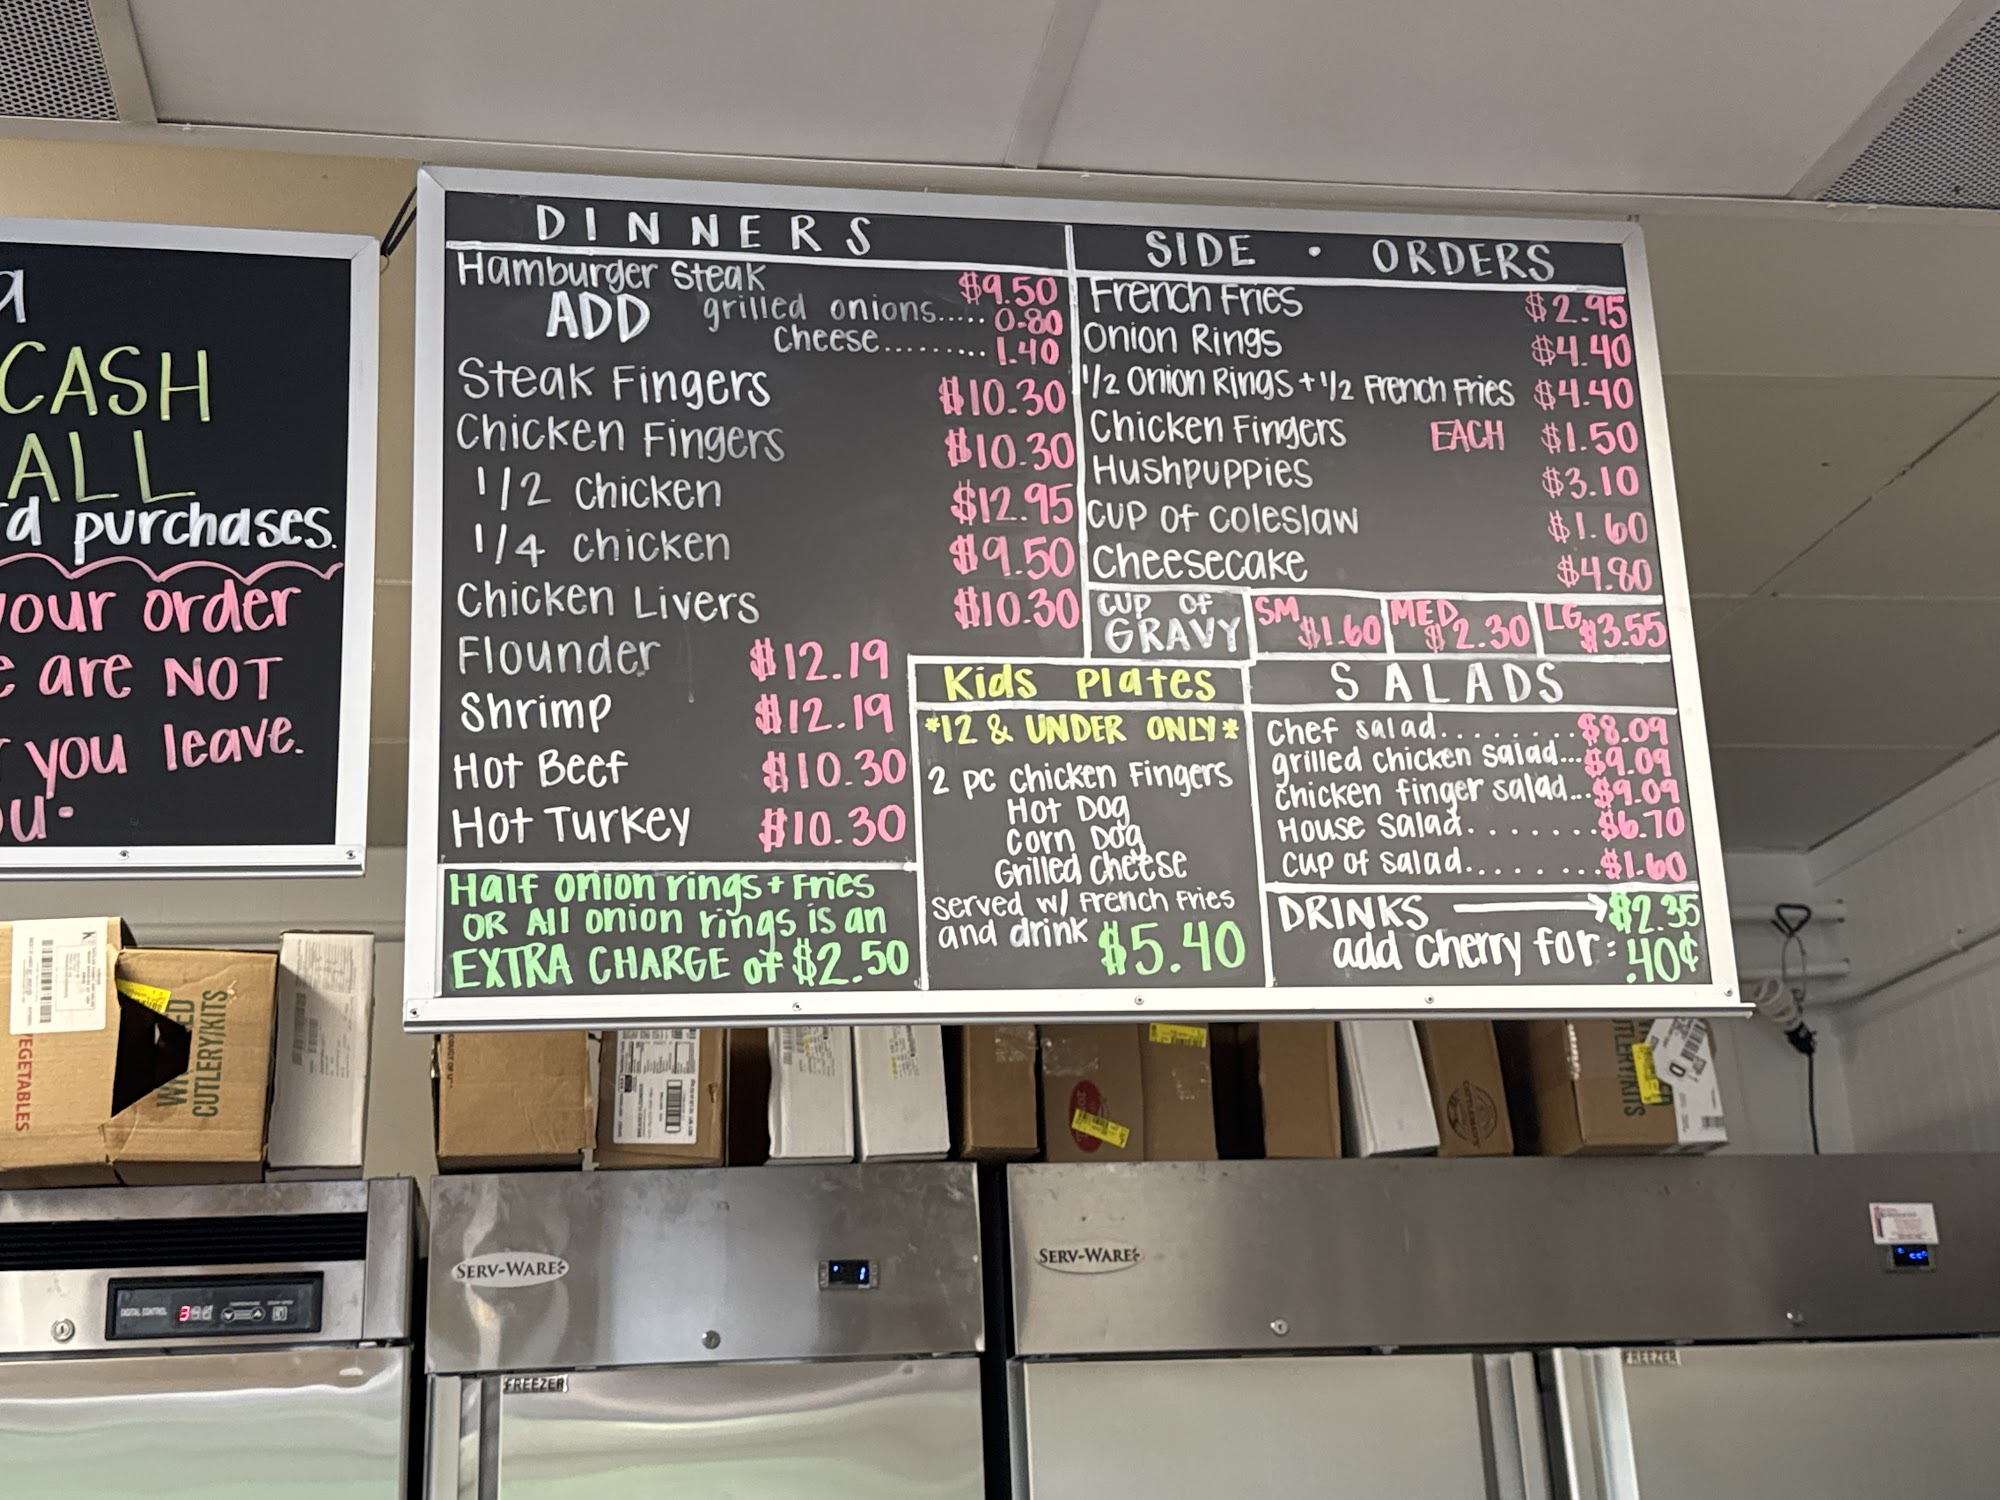 CASH
ALL
purchases.
your order
are NOT
you leave.
DINNERS
Hamburger Steak $9.50
ADD grilled onions..... 0.80
cheese......... 1.40
Steak Fingers $10.30
Chicken Fingers $10.30
1/2 chicken $12.95
1/4 chicken $9.50
Chicken Livers $10.30
Flounder $12.19
Shrimp $12.19
Hot Beef $10.30
Hot Turkey $10.30
Half onion rings + Fries
OR All onion rings is an
EXTRA CHARGE of $2.50
SIDE • ORDERS
French Fries $2.95
Onion Rings $4.40
1/2 Onion Rings + 1/2 French Fries $4.40
Chicken Fingers EACH $1.50
Hushpuppies $3.10
Cup of Coleslaw $1.60
Cheesecake $4.80
CUP OF
GRAVY
SM $1.60 MED $2.30 LG $3.55
Kids Plates
*12 & UNDER ONLY*
2 pc chicken Fingers
Hot Dog
Corn Dog
Grilled Cheese
served w/ French Fries
and drink $5.40
SALADS
Chef salad........ $8.09
grilled chicken salad... $9.09
chicken finger salad... $9.09
House Salad....... $6.70
Cup of Salad........ $1.60
DRINKS → $2.35
add cherry for: .40¢
VEGETABLES
CUTLERY KITS
SERV-WARE
SERV-WARE
DIGITAL CONTROL
FREEZER
FREEZER